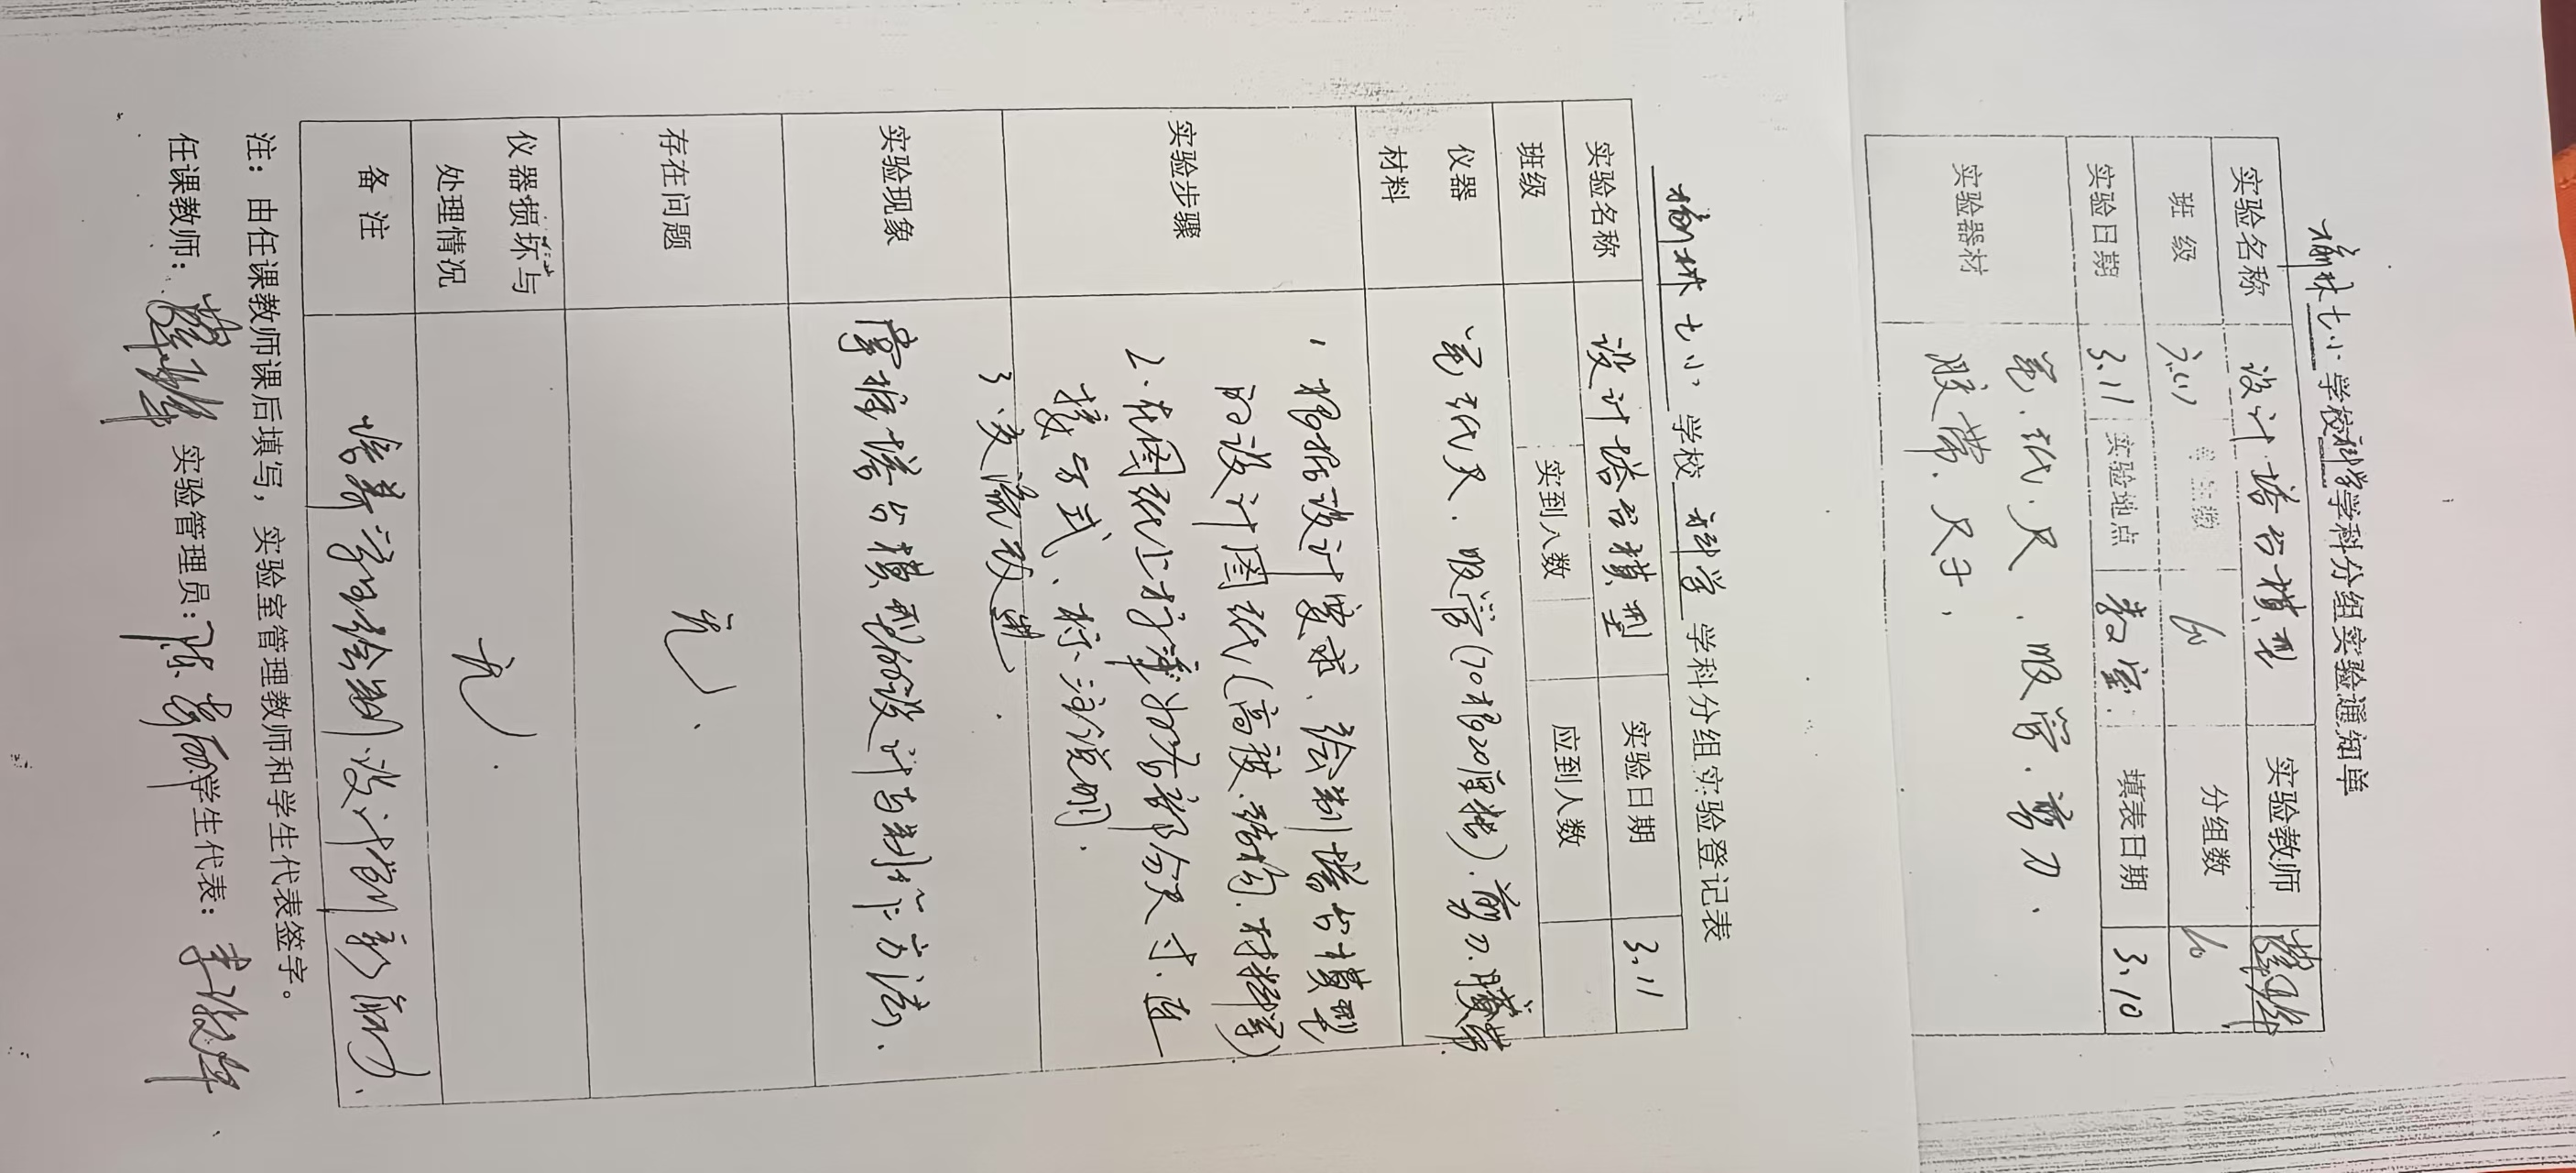 榆林七小 学校 科学 学科分组实验通知单
实验名称 设计塔台模型 实验教师
班 级 六(1) 分组数
实验日期 3.11 实验地点 教室. 填表日期 3.10
实验器材 笔.纸.尺.吸管.剪刀.
胶带.尺子.
榆林七小 学校 科学 学科分组实验登记表
实验名称 设计塔台模型 实验日期 3.11
班级 实到人数 应到人数
仪器 笔纸尺.吸管(70根20厘米).剪刀.胶带
材料
实验步骤 1 根据设计要求.绘制塔台模型
的设计图纸(高度.结构.材料等)
2.在图纸上各部分尺寸.连
接方式、标注说明.
3.交流改进.
实验现象 掌握塔台模型的设计与制作方法.
存在问题 无.
仪器损坏与 无.
处理情况
备 注 培养学生绘制设计创新能力.
注：由任课教师课后填写，实验室管理教师和学生代表签字。
任课教师： 实验管理员： 学生代表：